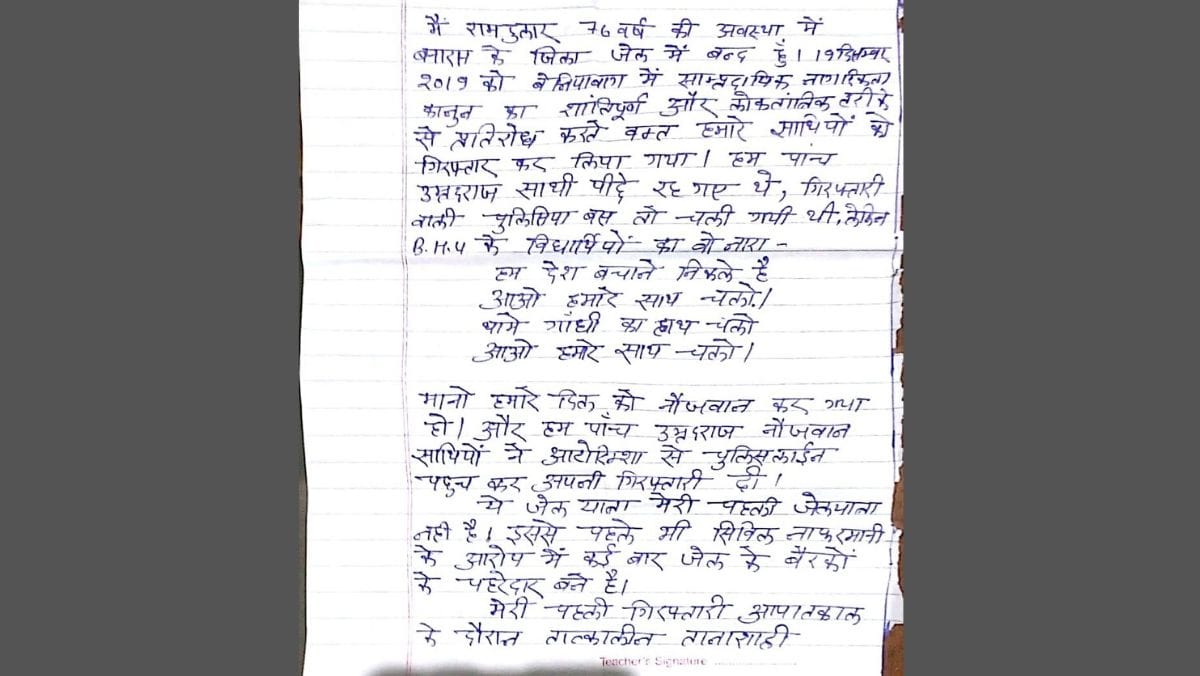 मैं रामदुलार 76 वर्ष की अवस्था में
बनारस के जिला जेल में बन्द हूँ। 19 दिसम्बर
2019 को बेनियाबाग में साम्प्रदायिक नागरिकता
कानुन का शांतिपूर्ण और लोकतांत्रिक तरीके
से प्रतिरोध करते वक्त हमारे साथियों को
गिरफ्तार कर लिया गया। हम पांच
उम्रदराज साथी पीछे रह गए थे, गिरफ्तारी
वाली पुलिसिया बस तो चली गयी थी, लेकिन
B.H.U के विधार्थियों का वो नारा -
हम देश बचाने निकले है
आओ हमारे साथ चलो।
थामे गाँधी का हाथ चलो
आओ हमारे साथ चलो।
मानो हमारे दिल को नौजवान कर गया
हो। और हम पाँच उम्रदराज नौजवान
साथियों ने आटोरिक्शा से पुलिसलाईन
पहुच कर अपनी गिरफ्तारी दी।
ये जेल यात्रा मेरी पहली जेलयात्रा
नही है। इससे पहले भी सिविल नाफरमानी
के आरोप में कई बार जेल के बैरकों
के पहरेदार बने है।
मेरी पहली गिरफ्तारी आपातकाल
के दौरान तात्कालीन तानाशाही
Teacher's Signature